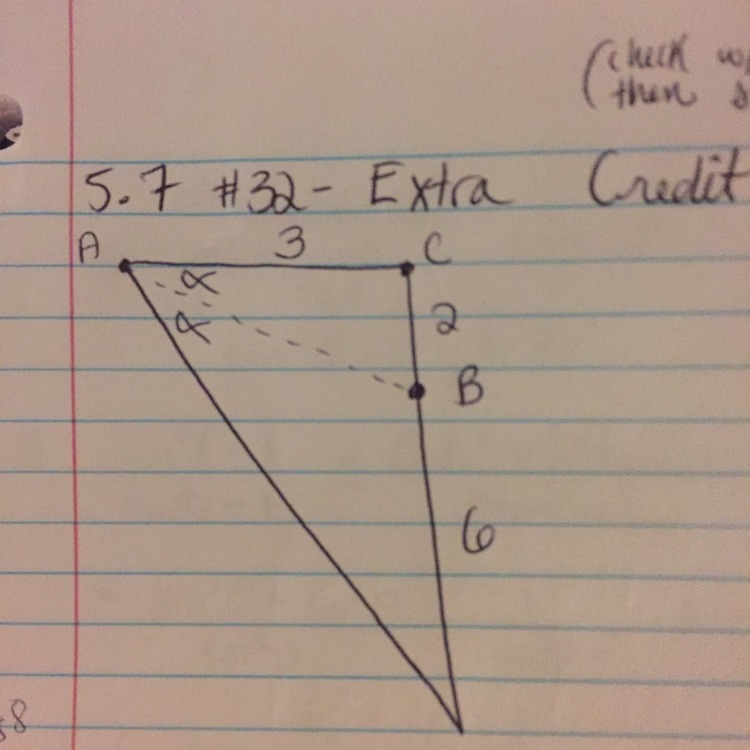 (check
then
5.7 #32- Extra Credit
A 3 C
α
2
α
B
6
8